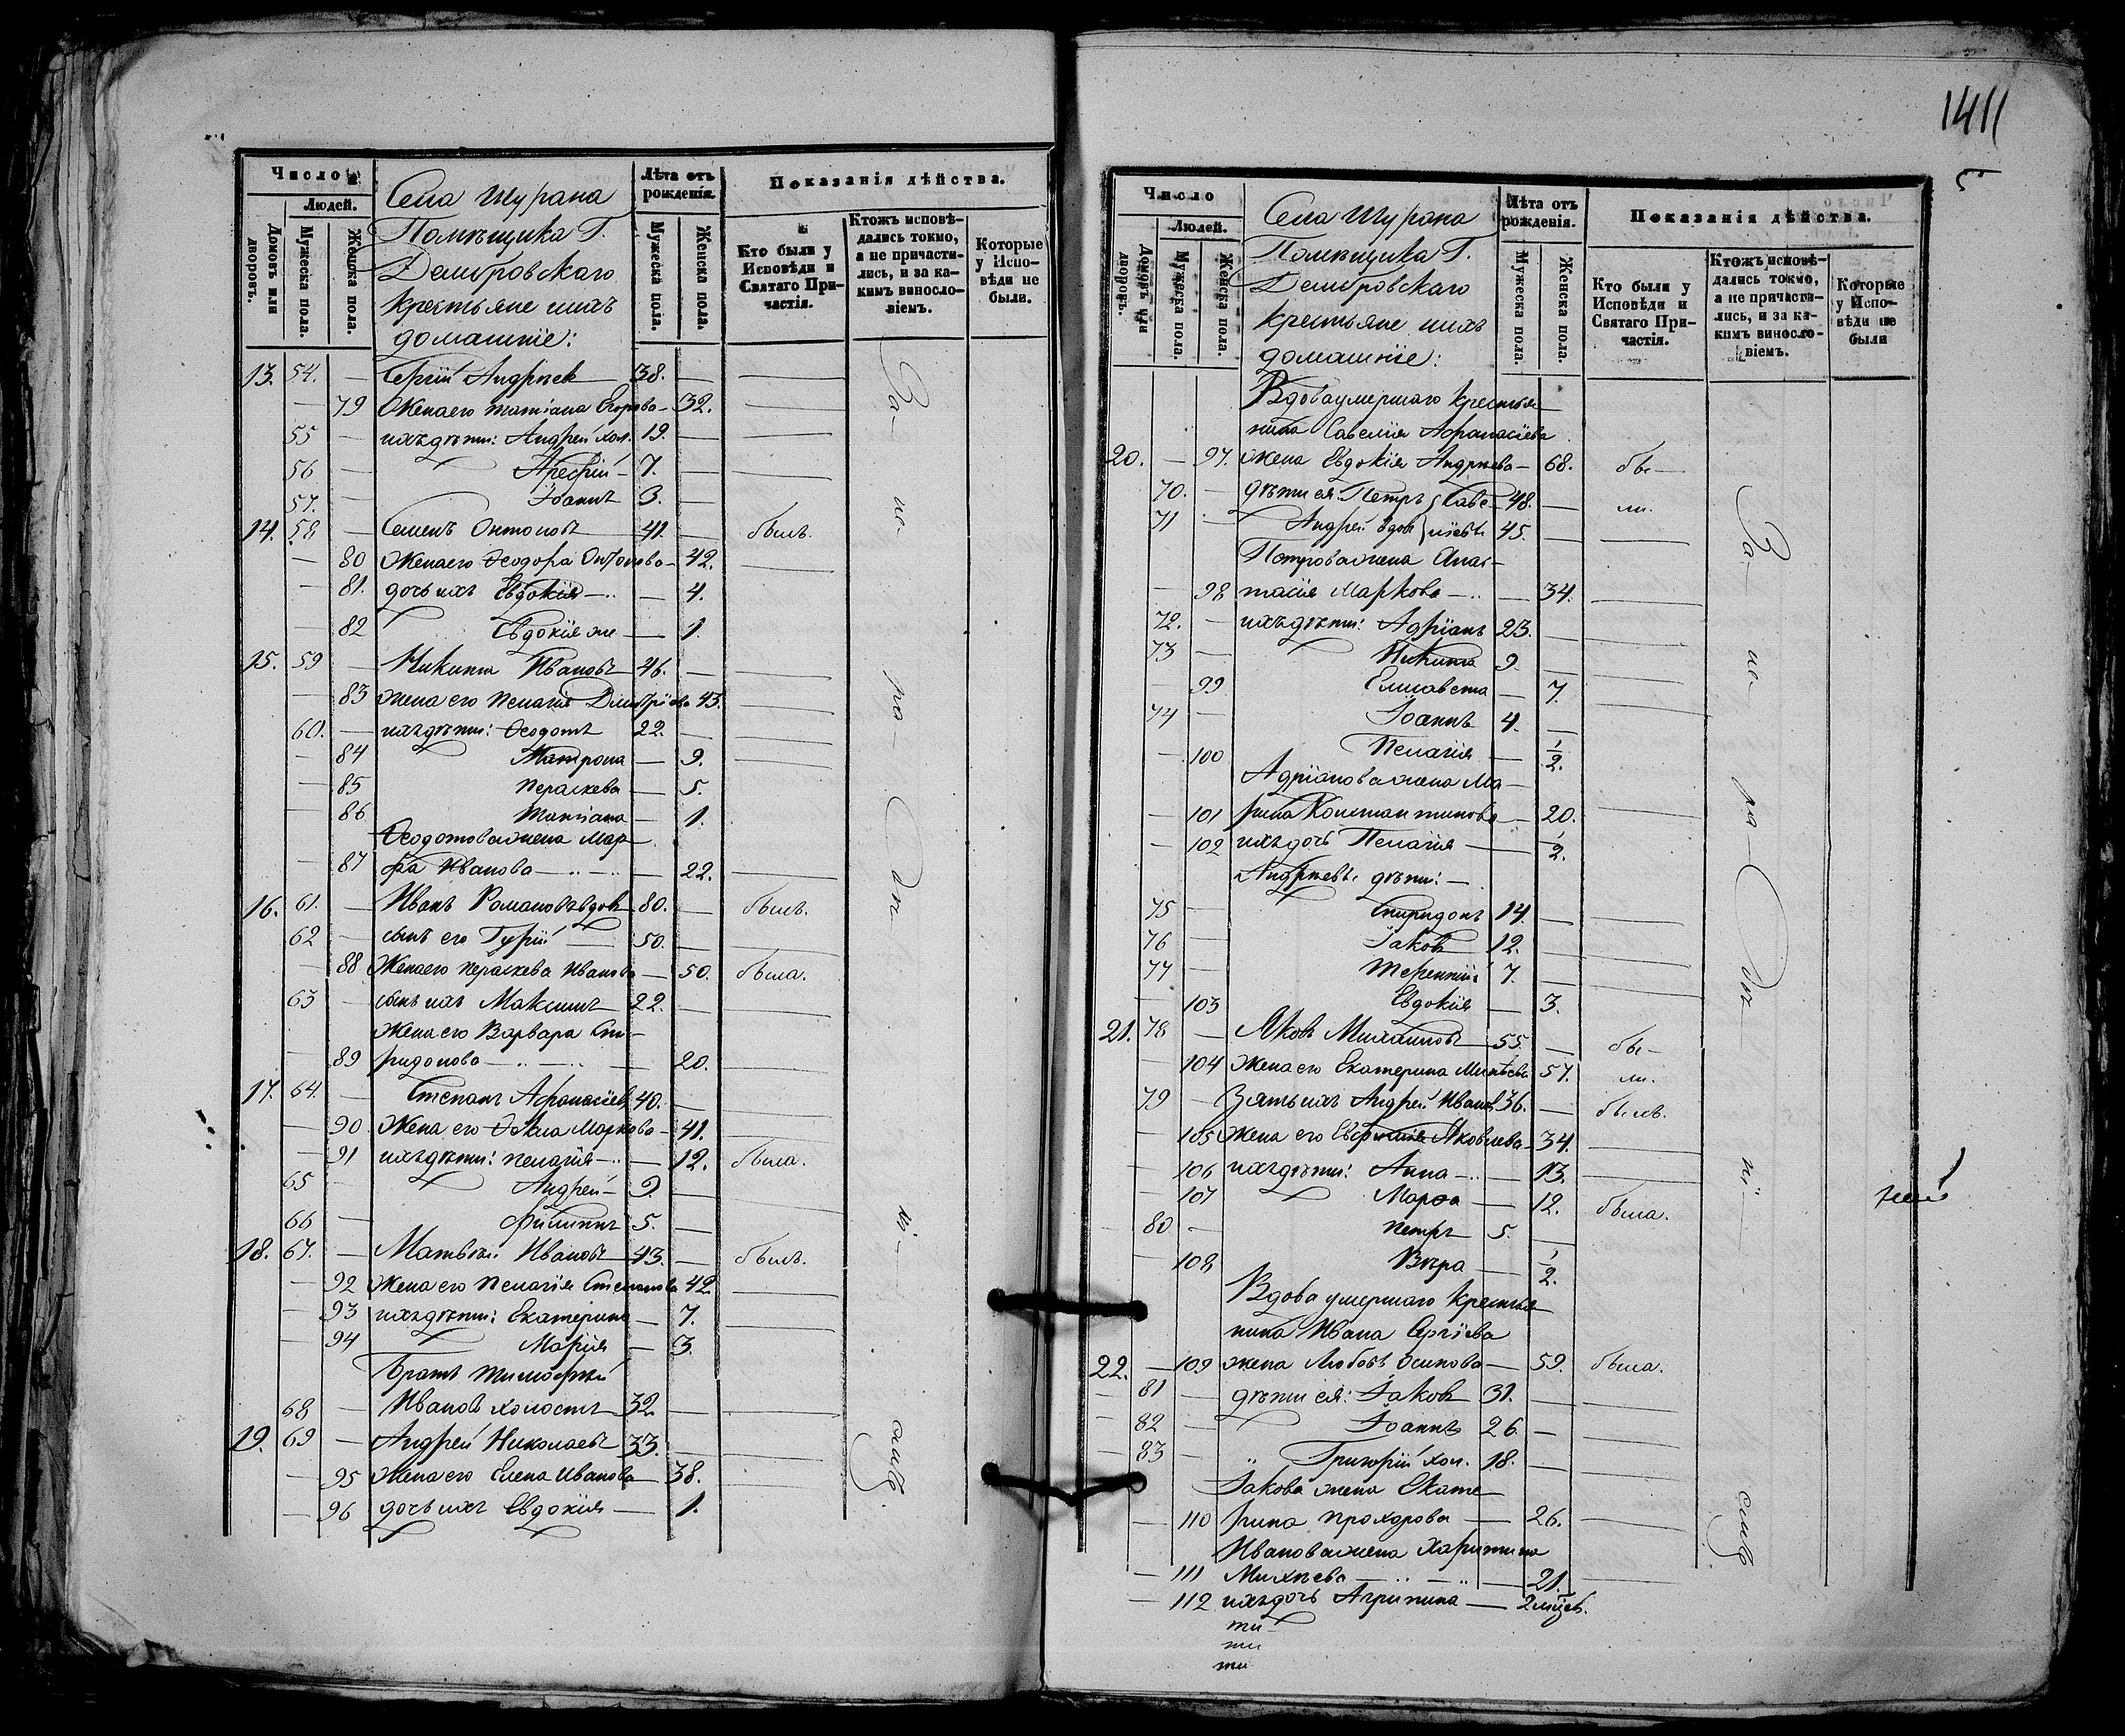 Число
Людей.
Домовъ или дворовъ.
Мужеска пола.
Женска пола.
Села Шурана
Помѣщика Г.
крестьяне и ихъ
домашніе:
Лѣта отъ рожденія.
Мужеска пола.
Женска пола.
Показанія дѣйства.
Кто были у Исповѣди и Святаго Причастія.
Ктожъ исповѣдались токмо, а не причастились, и за какимъ винословіемъ.
Которые у Исповѣди не были.
13. 54. — Сергій Андреевъ 38. —
— 79 Жена его Татіана Егорова — 32.
55 — ихъ дѣти: Андрей хол. 19. —
56 — Арефій — 7. —
57. — Іоаннъ 3. —
14. 58 — Семенъ Антоновъ 41. — былъ.
— 80 Жена его Ѳеодора Антонова — 42.
— 81. дочь ихъ Евдокія — 4.
— 82 Евдокія же — 1.
15. 59 — Никита Ивановъ 46. —
— 83 жена его Пелагія Димитріева 43.
60. — ихъ дѣти: Ѳеодотъ 22. —
— 84 Матрона — 9.
— 85 Параскева — 5.
— 86 Татіана — 1.
Ѳеодотова жена Мар
— 87 ѳа Иванова — 22.
16. 61. — Иванъ Романовъ вдов 80. — былъ.
62 — сынъ его Гурій 50. —
— 88 Жена его Параскева Иванова — 50. была.
63 — сынъ ихъ Максимъ 22. —
Жена его Варвара Спи—
— 89 ридонова — 20.
17. 64. — Степанъ Афанасіевъ 40. —
— 90 Жена его Ѳекла Маркова — 41.
— 91 ихъ дѣти: Пелагія — 12. была.
65 — Андрей — 9. —
66 — Филиппъ 5. —
18. 67. — Матвѣй Ивановъ 43. — былъ.
— 92 Жена его Пелагія Степанова 42.
— 93 ихъ дѣти: Екатерина — 7.
— 94 Марія — 3.
Братъ Тимофей
68 — Ивановъ холостъ 32. —
19. 69 — Андрей Николаевъ 33. —
— 95 Жена его Елена Иванова — 38.
— 96 дочь ихъ Евдокія — 1.
1411
5
Число
Людей.
Домовъ или дворовъ.
Мужеска пола.
Женска пола.
Села Шурана
Помѣщика Г.
крестьяне и ихъ
домашніе:
Лѣта отъ рожденія.
Мужеска пола.
Женска пола.
Показанія дѣйства.
Кто были у Исповѣди и Святаго Причастія.
Ктожъ исповѣдались токмо, а не причастились, и за какимъ винословіемъ.
Которые у Исповѣди не были
Вдова умершаго крестья—
нина Савелія Афанасіева
20. — 97. жена Евдокія Андреева — 68. бы—
70. — дѣти ея: Петръ } Саве— 48. — ли.
71 — Андрей вдов } ліевы 45. —
Петрова жена Анас—
— 98 тасія Маркова — 34.
72. — ихъ дѣти: Адріанъ 23. —
73 — Никита 9. —
— 99 Елисавета — 7.
74 — Іоаннъ 4. —
— 100 Пелагія — 1/2.
Адріанова жена Ма—
— 101 рина Константинова — 20.
— 102 ихъ дочь Пелагія — 1/2.
Андреевы дѣти: —
75 — Спиридонъ 14. —
76 — Іаковъ 12. —
77 — Терентій 7. —
— 103 Евдокія — 3.
21. 78 — Яковъ Михайловъ 55. — бы—
— 104 Жена его Екатерина 57. ли.
79 — Зять ихъ Андрей Ивановъ 36. — былъ.
— 105 Жена его Евфимія Яковлева — 34.
— 106 ихъ дѣти: Анна — 13.
— 107 Марѳа — 12. была.
80 — Петръ 5. —
— 108 Вѣра — 1/2.
Вдова умершаго крестья—
нина Ивана Сергіева
22. — 109 жена Любовь Осипова — 59. была.
— 81 — дѣти ея: Іаковъ 31. —
— 82 — Іоаннъ 26. —
— 83 — Григорій хол. 18. —
Іакова жена Екате
— 110 рина Прохорова — 26.
Иванова жена Харитина
— 111 Михѣева — 21.
— 112 ихъ дочь Агрипина — 2 мѣсяц.
ти
ти
ти